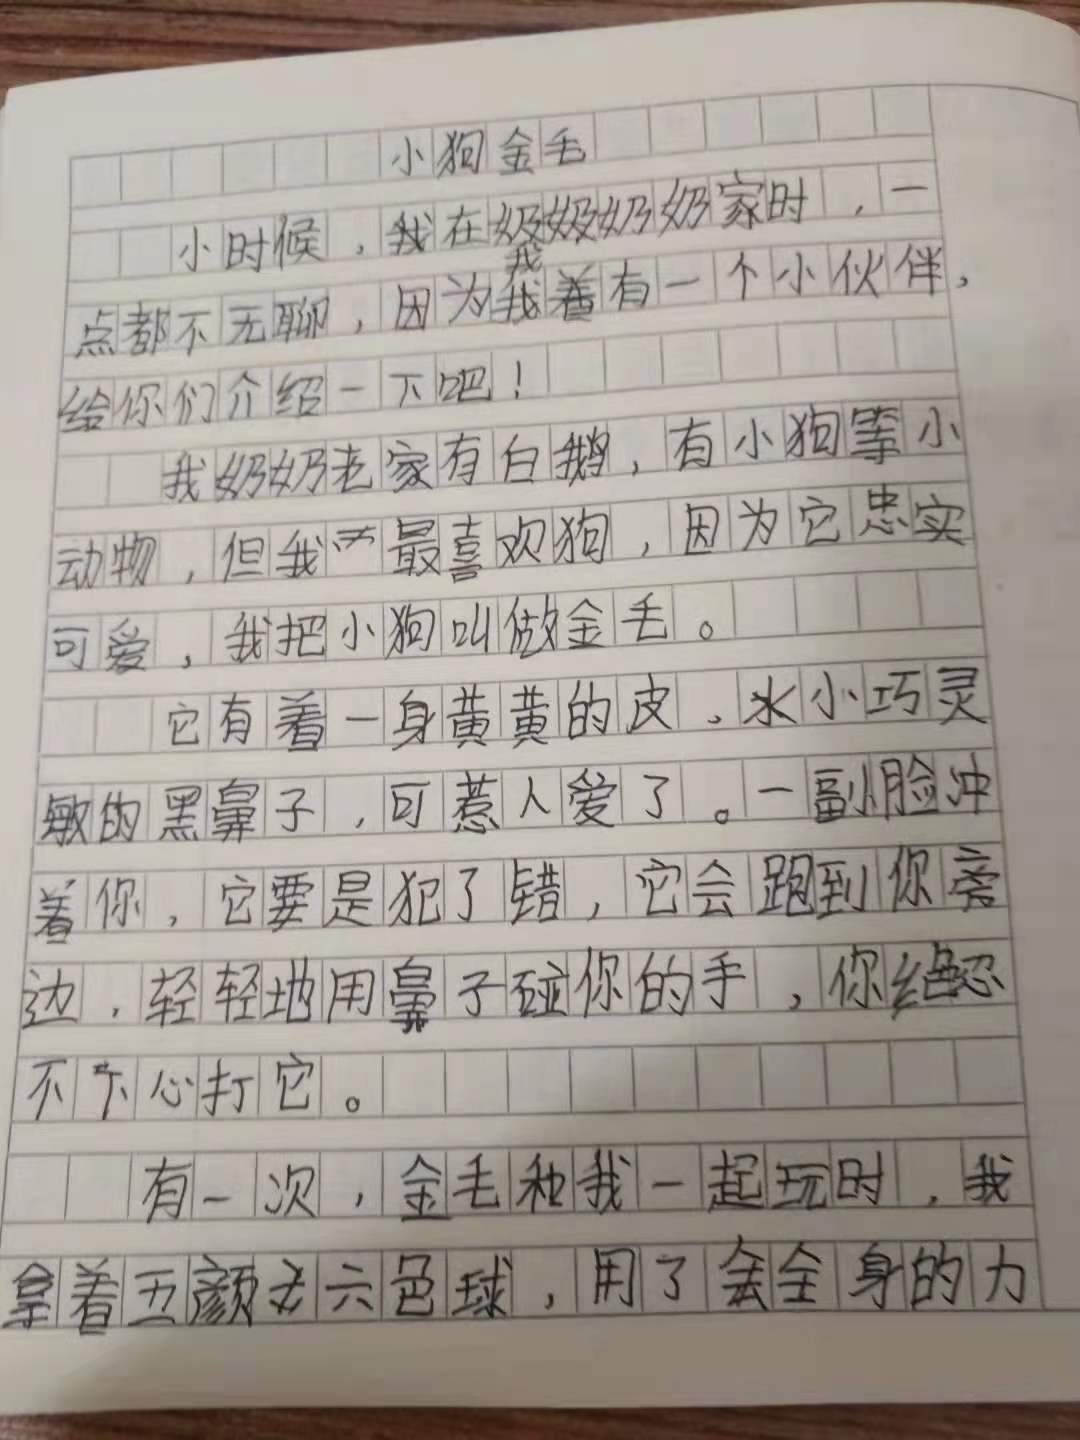 小狗金毛
小时候，我在奶奶家时，一
点都不无聊，因为我有一个小伙伴，
给你们介绍一下吧！
我奶奶老家有白鹅，有小狗等小
动物，但我最喜欢狗，因为它忠实
可爱，我把小狗叫做金毛。
它有着一身黄黄的皮，水小巧灵
敏的黑鼻子，可惹人爱了。一副脸冲
着你，它要是犯了错，它会跑到你旁
边，轻轻地用鼻子碰你的手，你绝忍
不下心打它。
有一次，金毛和我一起玩时，我
拿着五颜六色球，用了全身的力